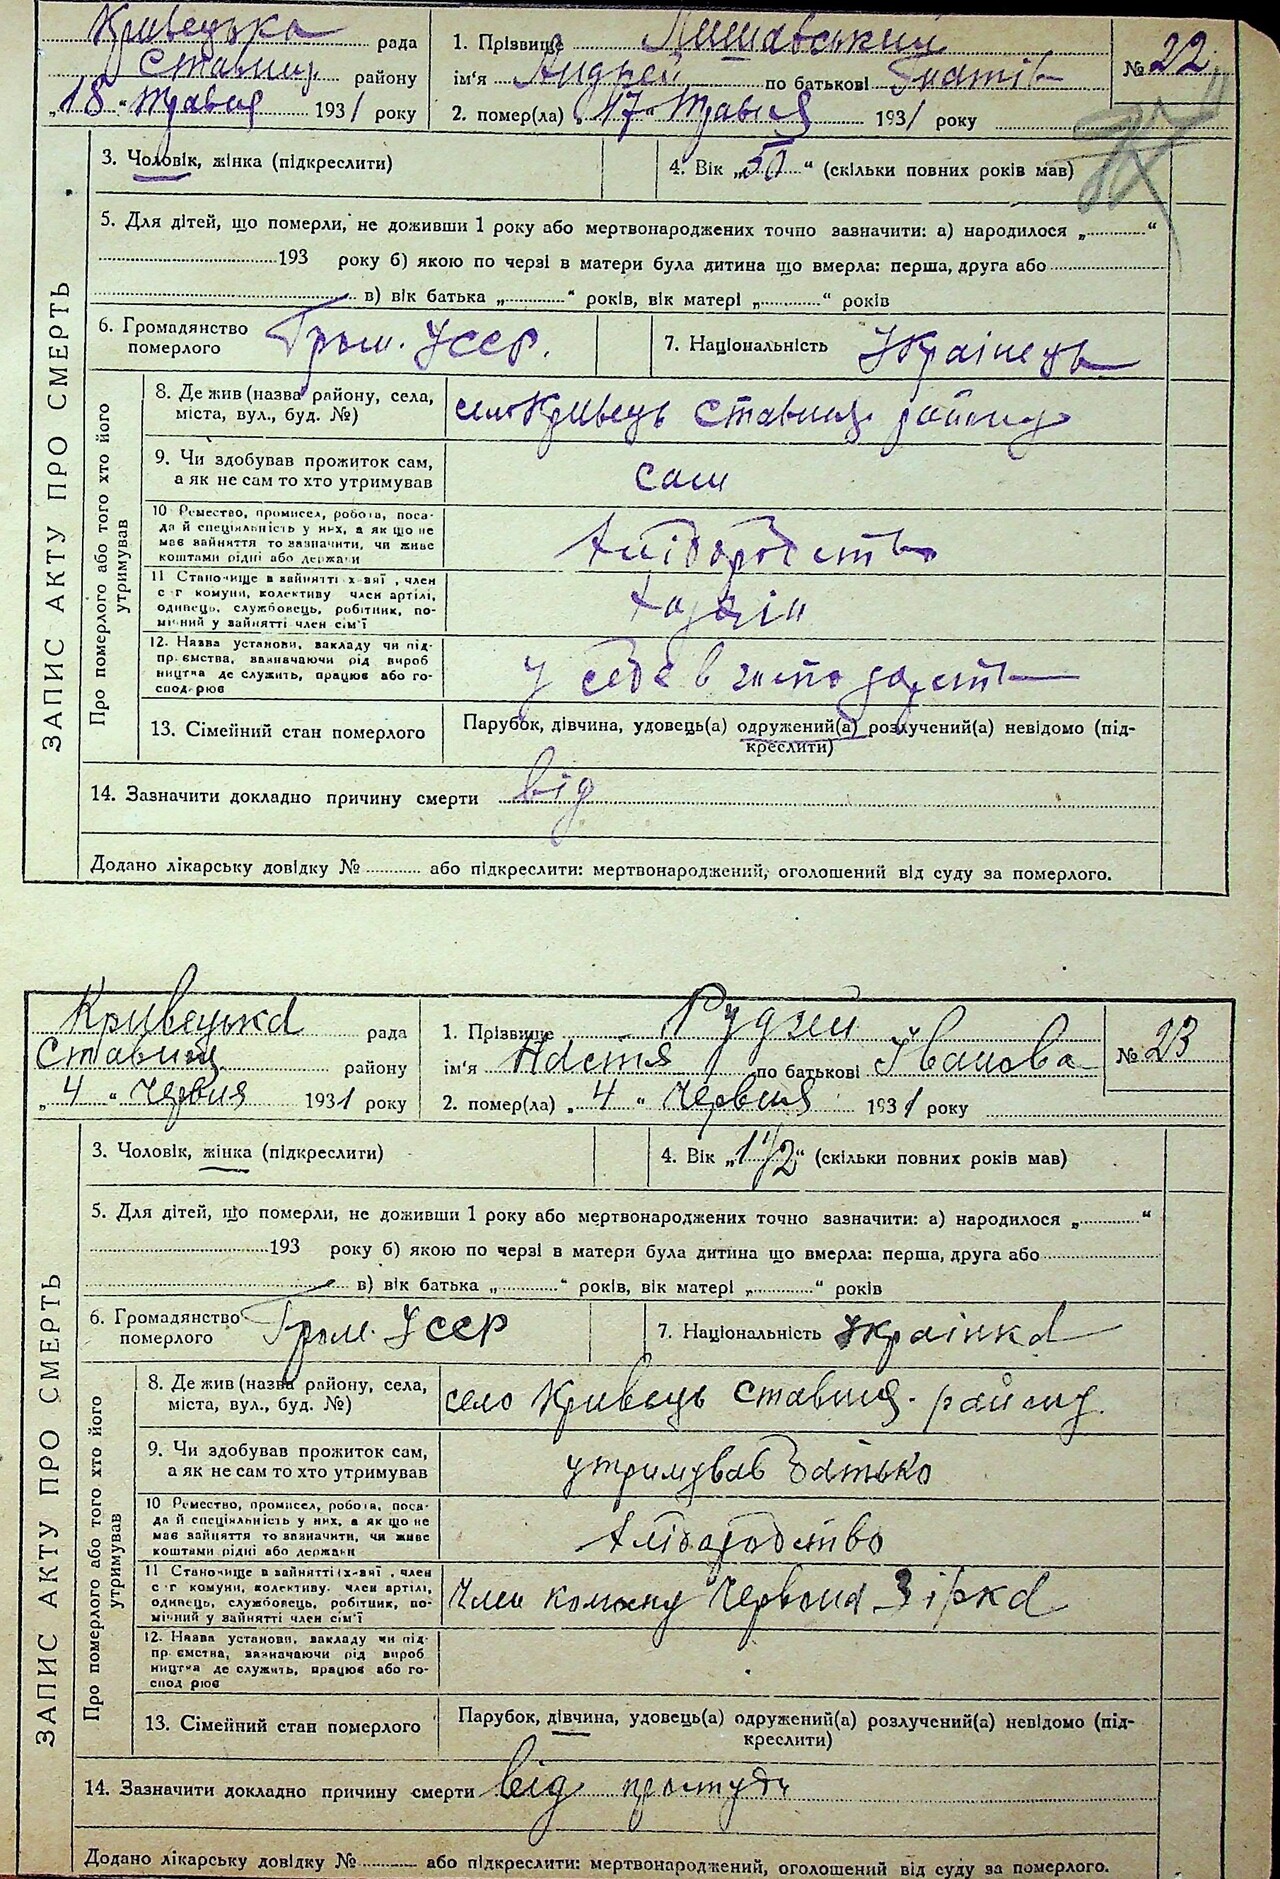 Кривецька рада
Ставищ. району
„18“ травня 1931 року
1. Прізвище
ім'я Андрей по батькові Гнатів
2. помер(ла) „17“ травня 1931 року
№ 22
ЗАПИС АКТУ ПРО СМЕРТЬ
3. Чоловік, жінка (підкреслити)
4. Вік „50“ (скільки повних років мав)
5. Для дітей, що померли, не доживши 1 року або мертвонароджених точно зазначити: а) народилося „ “
193 року б) якою по черзі в матери була дитина що вмерла: перша, друга або
в) вік батька „ “ років, вік матері „ “ років
6. Громадянство
померлого
Гром. УССР.
7. Національність Українець
Про померлого або того хто його
утримував
8. Де жив (назва району, села,
міста, вул., буд. №)
село Кривець Ставищ. району
9. Чи здобував прожиток сам,
а як не сам то хто утримував
сам
10 Ремество, промисел, робота, поса-
да й спеціяльність у них, а як що не
має зайняття то зазначити, чи живе
коштами рідні або держави
хліборобство
11 Становище в зайнятті х-зяї , член
с г комуни, колективу член артілі,
одинець, службовець, робітник, по-
мічний у зайнятті член сім'ї
хазяїн
12. Назва установи, закладу чи під-
пр ємства, зазначаючи рід вироб
ництва де служить, працює або го-
спод рює
у себе в господарстві
13. Сімейний стан померлого
Парубок, дівчина, удовець(а) одружений(а) розлучений(а) невідомо (під-
креслити)
14. Зазначити докладно причину смерти від
Додано лікарську довідку № або підкреслити: мертвонароджений, оголошений від суду за померлого.
Кривецька рада
Ставищ. району
„4“ Червня 1931 року
1. Прізвище Рудзей
ім'я Настя по батькові Іванова
2. помер(ла) „4“ Червня 1931 року
№ 23
ЗАПИС АКТУ ПРО СМЕРТЬ
3. Чоловік, жінка (підкреслити)
4. Вік „1 1/2“ (скільки повних років мав)
5. Для дітей, що померли, не доживши 1 року або мертвонароджених точно зазначити: а) народилося „ “
193 року б) якою по черзі в матери була дитина що вмерла: перша, друга або
в) вік батька „ “ років, вік матері „ “ років
6. Громадянство
померлого
Гром. УССР
7. Національність Українка
Про померлого або того хто його
утримував
8. Де жив (назва району, села,
міста, вул., буд. №)
село Кривець Ставищ. району
9. Чи здобував прожиток сам,
а як не сам то хто утримував
утримував батько
10 Ремество, промисел, робота, поса-
да й спеціяльність у них, а як що не
має зайняття то зазначити, чи живе
коштами рідні або держави
хліборобство
11 Становище в зайнятті (х-зяї , член
с г комуни, колективу. член артілі,
одинець, службовець, робітник, по-
мічний у зайнятті член сім'ї
Член комуни Червона Зірка
12. Назва установи, закладу чи під-
пр ємства, зазначаючи рід вироб
ництва де служить, працює або го-
спод рює
13. Сімейний стан померлого
Парубок, дівчина, удовець(а) одружений(а) розлучений(а) невідомо (під-
креслити)
14. Зазначити докладно причину смерти від простуди
Додано лікарську довідку № або підкреслити: мертвонароджений, оголошений від суду за померлого.